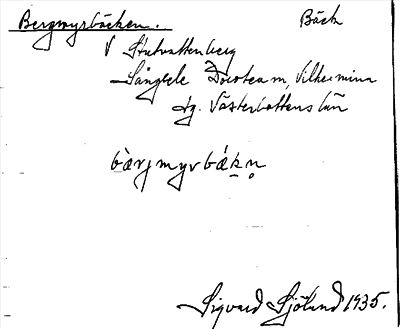 Bergmyrbäcken. Bäck
V Stutvattenberg
Långsele Dorotea m, Vilhelmina
tg. Västerbottens län
bàrjmyrbǽkn̥
Sigvard Sjölund 1935.